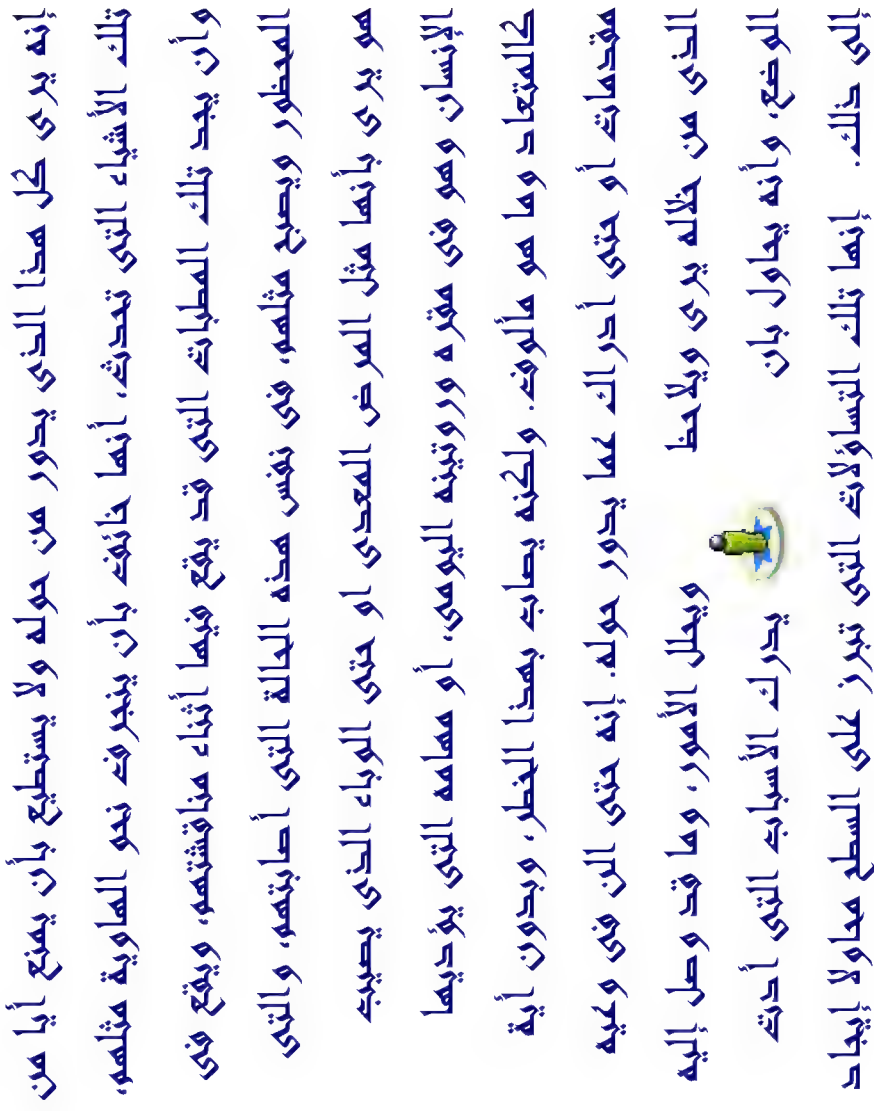 أنه يرى كل هذا الذي يدور من حوله و لا يستطيع بأن يمنع أيا من
تلك الأشياء التي تحدث، أنها بأن نحو الهاوية مثلهم،
وأن تجد تلك المطبات التي قد تقع فيها أثناء مناقشتهم، وتقع في
المحظور وتصبح مثلهم، في نفس هذه الحالة التي أصابتهم، والتي
هو يرى بأنها مثل المرض المعدي او حتى الوباء الذي يصيب
الإنسان وهو في مقره أو مهامه التي يؤديها
كالمعتاد دوما هو مألوف. ولكنه يصاب بهذا الخطر، وبدون أية
مقدمات أو حتى أدراك لما يدور حوله. أنه حتى الآن في حيرة
الذي من خلاله يرى ويلاحظ ويحلل الأمور، وما قد وصل إليه
الوضع، وأنه يحاول بأن يدرك الأسباب التي أدت
إلى ذلك. أنها تلك التساؤلات التي السطح محاولا أيجاد